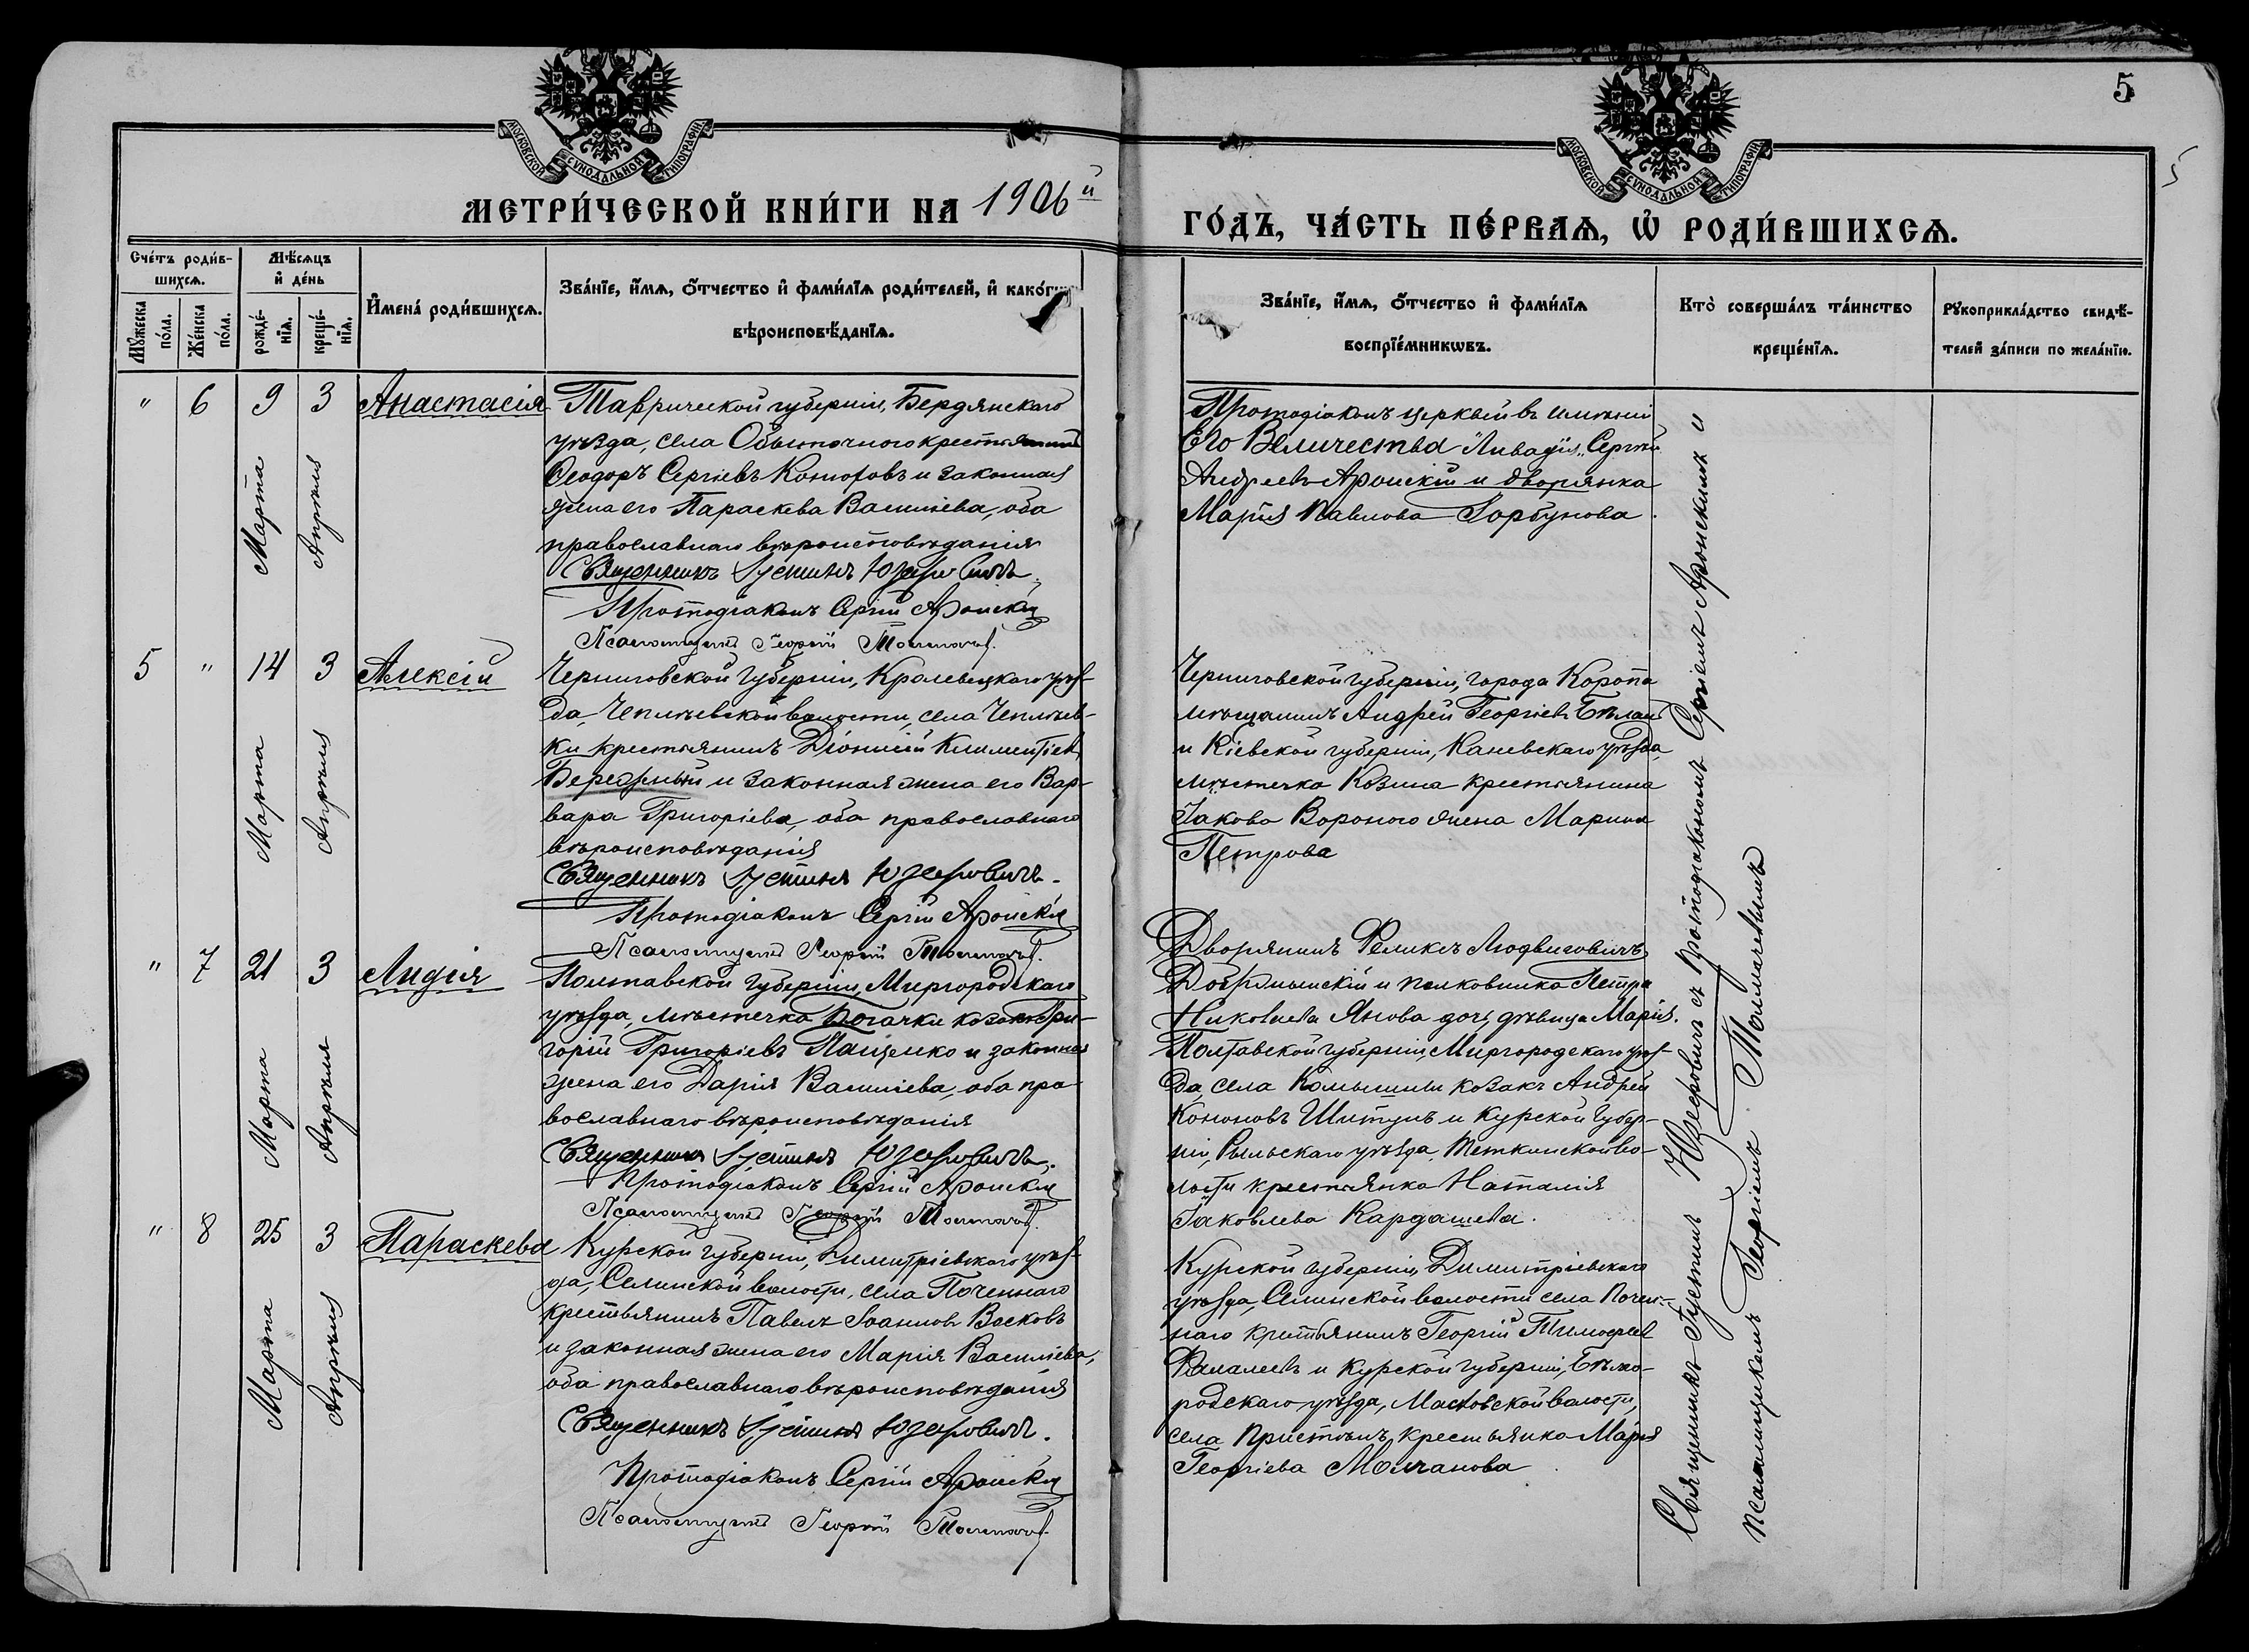 5
МОСКОВСКОЙ СѴНОДАЛЬНОЙ ТИПОГРАФІИ
МОСКОВСКОЙ СѴНОДАЛЬНОЙ ТИПОГРАФІИ
МЕТРИ́ЧЕСКОЙ КНИ́ГИ НА 1906й
ГО́ДЪ, ЧА́СТЬ ПЕ́РВАѦ, Ѡ҆ РОДИ́ВШИХСѦ.
Сче́тъ роди́в-
шихсѧ.
Мꙋ́жеска по́ла.
Же́нска по́ла.
Мѣ́сѧцъ
и҆ де́нь
рожде́-
нїѧ.
креще́-
нїѧ.
И҆мена́ роди́вшихсѧ.
Зва́нїе, и҆́мѧ, ѻ҆́тчество и҆ фами́лїѧ роди́телей, и҆ како́гѡ
вѣроисповѣ́данїѧ.
Зва́нїе, и҆́мѧ, ѻ҆́тчество и҆ фами́лїѧ
воспрїе́мникѡвъ.
Кто̀ соверша́лъ та́инство
креще́нїѧ.
Рꙋкоприкла́дство свидѣ́-
телей за́писи по жела́нїю.
" 6 9 3 Анастасія
Марта
Апрѣля
Таврической губерніи, Бердянскаго
уѣзда, села Обыточнаго крестьянинъ
Ѳеодоръ Сергіевъ и законная
жена его Параскева Василіева, оба
православнаго вѣроисповѣданія
Священникъ Іустинъ Юзефовичъ.
Протодіаконъ Сергій Аронскій
Псаломщикъ Георгій Толмачевъ.
Протодіаконъ церквей въ имѣніи
Его Величества "Ливадія" Сергѣй
Андреевъ Аронскій и дворянка
Марія Павлова Горбунова.
5 " 14 3 Алексій
Марта
Апрѣля
Черниговской губерніи, Кролевецкаго уѣз-
да, Чеплѣевской волости, села Чеплѣев-
ки крестьянинъ Діонисій Климентіевъ
Бережный и законная жена его Вар-
вара Григоріева, оба православнаго
вѣроисповѣданія
Священникъ Іустинъ Юзефовичъ.
Протодіаконъ Сергій Аронскій
Псаломщикъ Георгій Толмачевъ.
Черниговской губерніи, города Коропа
мѣщанинъ Андрей Георгіевъ
и Кіевской губерніи, Каневскаго уѣзда,
мѣстечка Козина крестьянина
Іакова Вороного жена Марина
Петрова
" 7 21 3 Лидія
Марта
Апрѣля
Полтавской губерніи, Миргородскаго
уѣзда, мѣстечка Богачки козакъ Гри-
горій Григоріевъ Пащенко и законная
жена его Дарія Василіева, оба пра-
вославнаго вѣроисповѣданія
Священникъ Іустинъ Юзефовичъ.
Протодіаконъ Сергій Аронскій
Псаломщикъ Георгій Толмачевъ.
Дворянинъ Феликсъ Людвиговичъ
и полковника Петра
Николаева Янова дочь, дѣвица Марія.
Полтавской губерніи, Миргородскаго уѣз-
да, села Комышни козакъ Андрей
Кононовъ Шитунъ и Курской губер-
ніи, Рыльскаго уѣзда, Теткинской во-
лости крестьянка Наталія
Іаковлева Кардашева.
" 8 25 3 Параскева
Марта
Апрѣля
Курской губерніи, Димитріевскаго уѣз-
да, Селинской волости, села Поченнаго
крестьянинъ Павелъ Іоанновъ Восковъ
и законная жена его Марія Василіева,
оба православнаго вѣроисповѣданія
Священникъ Іустинъ Юзефовичъ.
Протодіаконъ Сергій Аронскій
Псаломщикъ Георгій Толмачевъ.
Курской губерніи, Димитріевскаго
уѣзда, Селинской волости села Почен-
наго крестьянинъ Георгій Тимофеевъ
Фалалеевъ и Курской губерніи, Бѣлго-
родскаго уѣзда, Масловской волости,
села Пристѣнъ, крестьянка Марія
Георгіева Молчанова
Священникъ Іустинъ Юзефовичъ съ протодіакономъ Сергіемъ Аронскимъ и
псаломщикомъ Георгіемъ Толмачевымъ